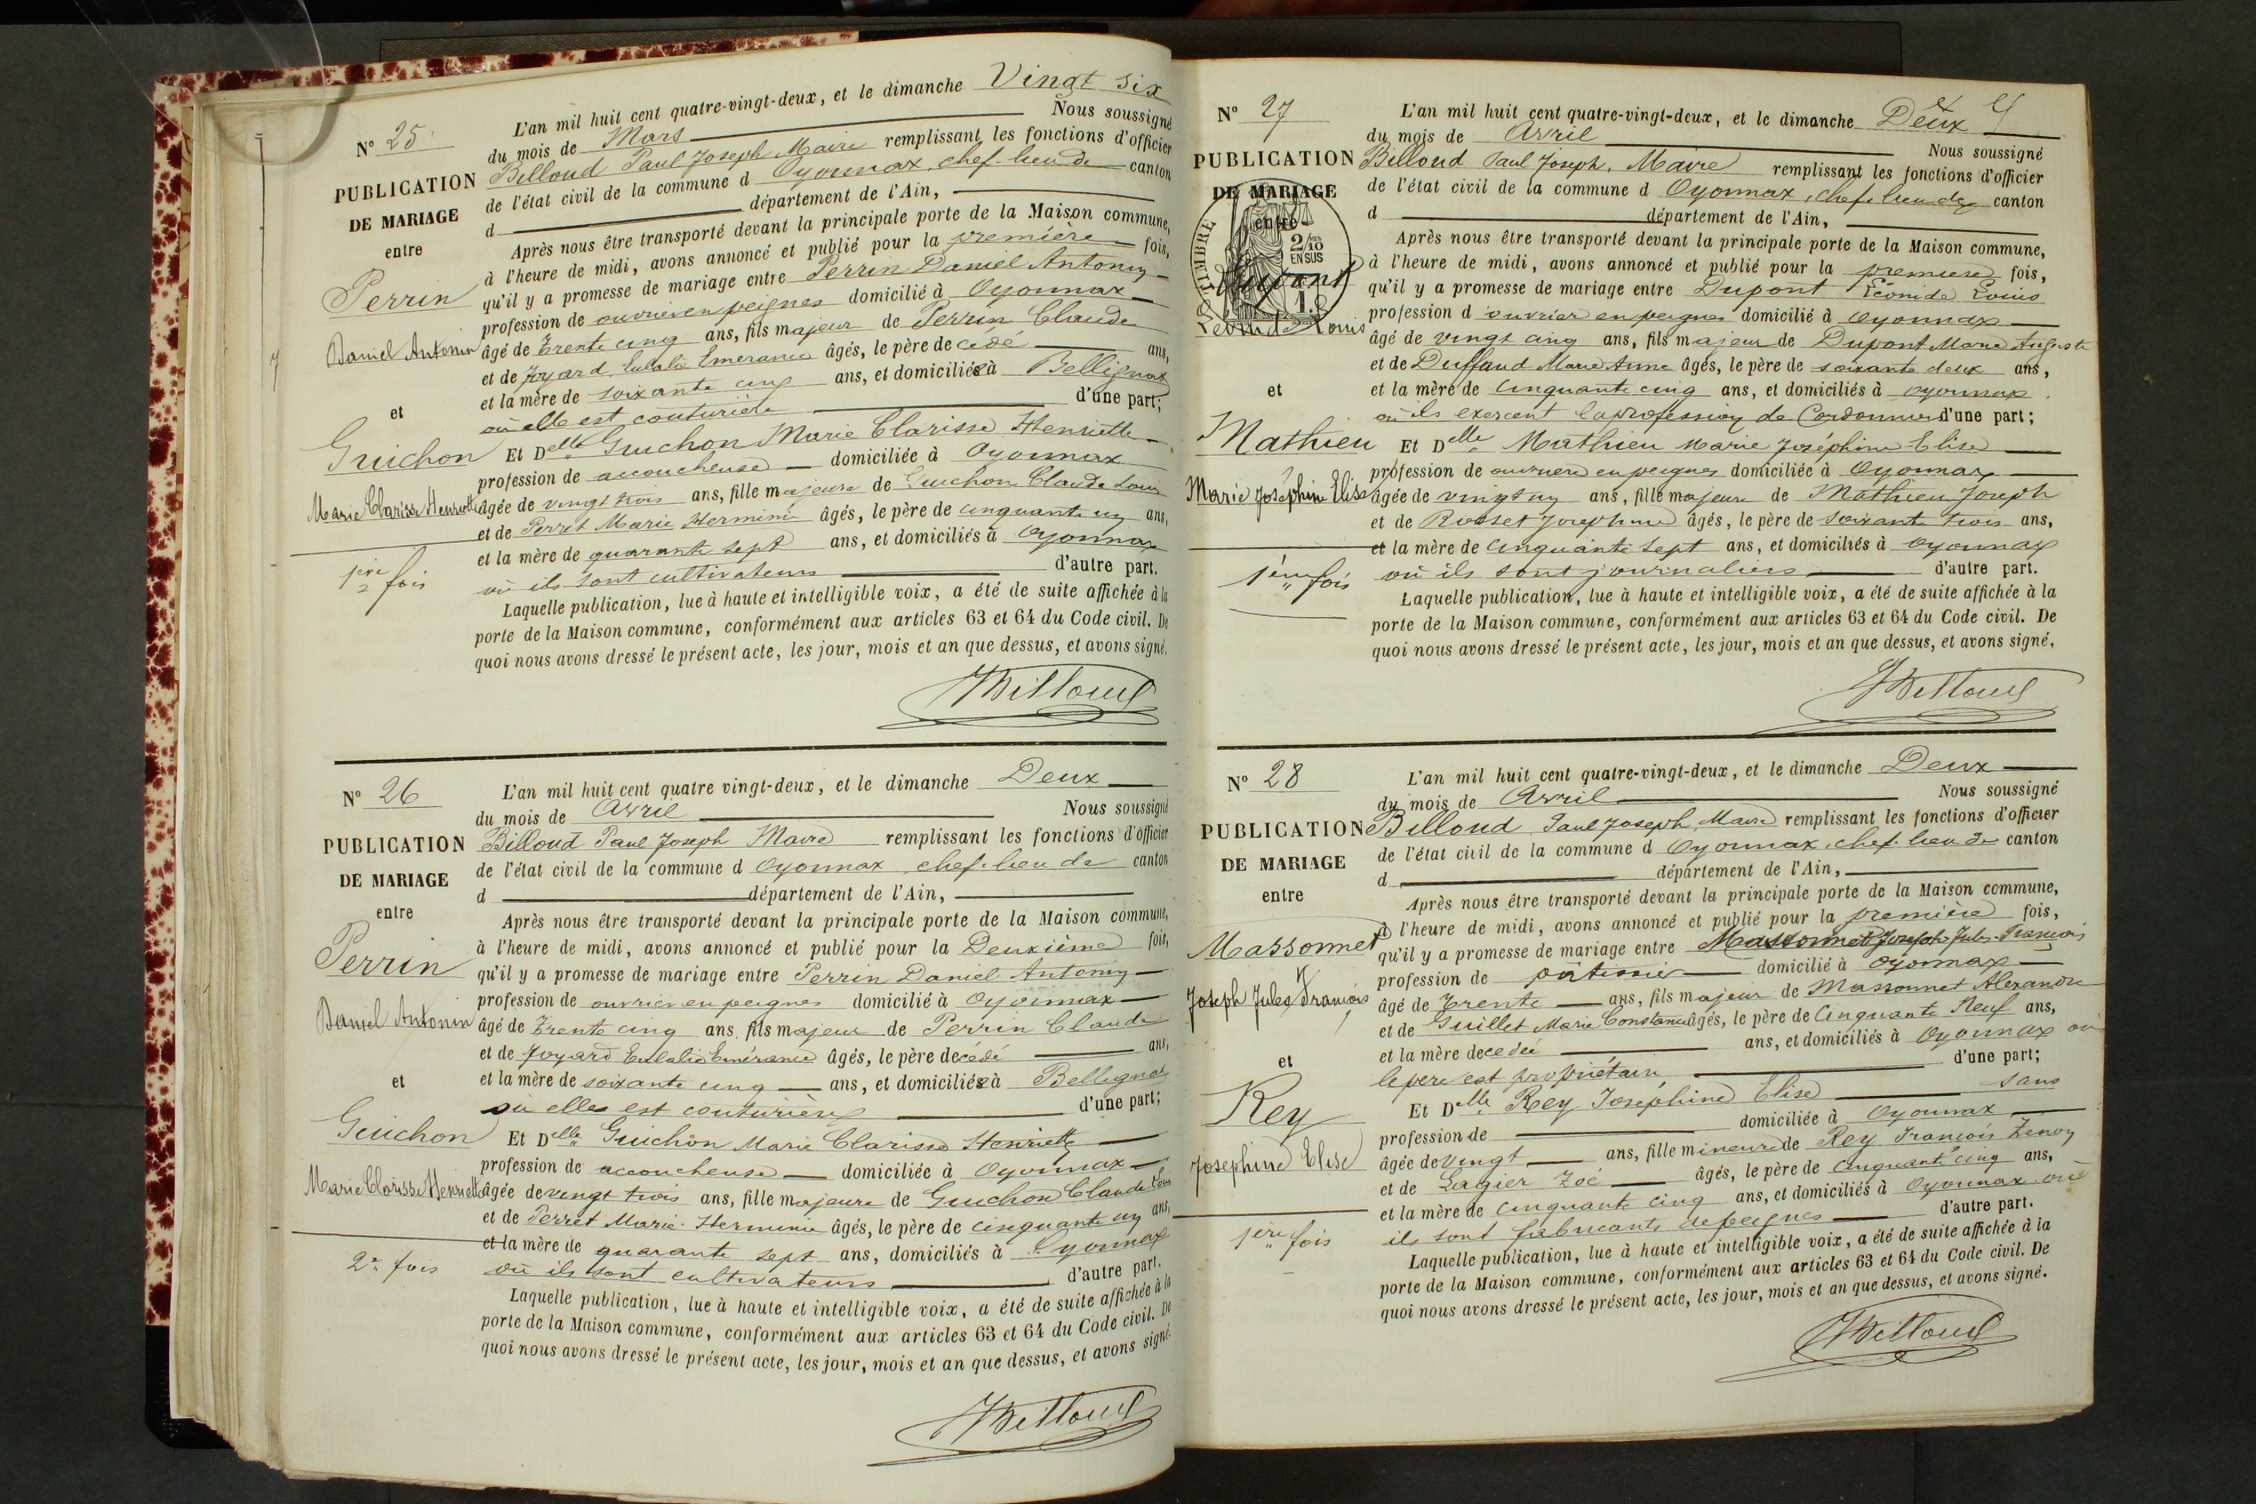 N° 25
PUBLICATION
DE MARIAGE
entre
Perrin
Daniel Antonin
et
Guichon
Marie Clarisse Henriette
1ère fois
L'an mil huit cent quatre-vingt-deux, et le dimanche Vingt six
du mois de Mars Nous soussigné
Billoud Paul Joseph Maire remplissant les fonctions d'officier
de l'état civil de la commune d Oyonnax, chef-lieu de canton
d département de l'Ain,
Après nous être transporté devant la principale porte de la Maison commune,
à l'heure de midi, avons annoncé et publié pour la première fois,
qu'il y a promesse de mariage entre Perrin Daniel Antonin
profession de ouvrier en peignes domicilié à Oyonnax
âgé de Trente cinq ans, fils majeur de Perrin Claude
et de Joyard Eulalie Emérance âgés, le père de cédé ans,
et la mère de soixante cinq ans, et domiciliés à Bellignat
où elle est couturière d'une part;
Et Delle Guichon Marie Clarisse Henriette
profession de accoucheuse domiciliée à Oyonnax
âgée de vingt trois ans, fille majeure de Guichon Claude Louis
et de Perret Marie Herminie âgés, le père de cinquante un ans,
et la mère de quarante sept ans, et domiciliés à Oyonnax
où ils sont cultivateurs d'autre part.
Laquelle publication, lue à haute et intelligible voix, a été de suite affichée à la
porte de la Maison commune, conformément aux articles 63 et 64 du Code civil. De
quoi nous avons dressé le présent acte, les jour, mois et an que dessus, et avons signé.
Billoud
N° 26
PUBLICATION
DE MARIAGE
entre
Perrin
Daniel Antonin
et
Guichon
Marie Clarisse Henriette
2e fois
L'an mil huit cent quatre vingt-deux, et le dimanche Deux
du mois de Avril Nous soussigné
Billoud Paul Joseph Maire remplissant les fonctions d'officier
de l'état civil de la commune d Oyonnax, chef-lieu de canton
d département de l'Ain,
Après nous être transporté devant la principale porte de la Maison commune,
à l'heure de midi, avons annoncé et publié pour la Deuxième fois,
qu'il y a promesse de mariage entre Perrin Daniel Antonin
profession de ouvrier en peignes domicilié à Oyonnax
âgé de Trente cinq ans, fils majeur de Perrin Claude
et de Joyard Eulalie Emérance âgés, le père decédé ans,
et la mère de soixante cinq ans, et domiciliés à Bellignat
où elles est couturière d'une part;
Et Delle Guichon Marie Clarisse Henriette
profession de accoucheuse domiciliée à Oyonnax
âgée de vingt trois ans, fille majeure de Guichon Claude Louis
et de Perret Marie Herminie âgés, le père de cinquante un ans,
et la mère de quarante sept ans, domiciliés à Oyonnax
où ils sont cultivateurs d'autre part.
Laquelle publication, lue à haute et intelligible voix, a été de suite affichée à la
porte de la Maison commune, conformément aux articles 63 et 64 du Code civil. De
quoi nous avons dressé le présent acte, les jour, mois et an que dessus, et avons signé.
Billoud
N° 27
PUBLICATION
DE MARIAGE
entre
TIMBRE
2/10
EN SUS
1.8
Dupont
Léonide Louis
et
Mathieu
Marie Joséphine Elise
1ère fois
L'an mil huit cent quatre-vingt-deux, et le dimanche Deux
du mois de Avril Nous soussigné
Billoud Paul Joseph, Maire remplissant les fonctions d'officier
de l'état civil de la commune d Oyonnax, chef-lieu de canton
d département de l'Ain,
Après nous être transporté devant la principale porte de la Maison commune,
à l'heure de midi, avons annoncé et publié pour la première fois,
qu'il y a promesse de mariage entre Dupont Léonide Louis
profession d ouvrier en peignes domicilié à Oyonnax
âgé de vingt cinq ans, fils majeur de Dupont Marie Auguste
et de Duffaud Marie Anne âgés, le père de soixante deux ans,
et la mère de cinquante cinq ans, et domiciliés à Oyonnax
où ils exercent la profession de Cordonnier d'une part;
Et Delle Mathieu Marie Joséphine Elise
profession de ouvrière en peignes domiciliée à Oyonnax
âgée de vingt un ans, fille majeure de Mathieu Joseph
et de Rosset Josephine âgés, le père de soixante trois ans,
et la mère de cinquante sept ans, et domiciliés à Oyonnax
où ils sont journaliers d'autre part.
Laquelle publication, lue à haute et intelligible voix, a été de suite affichée à la
porte de la Maison commune, conformément aux articles 63 et 64 du Code civil. De
quoi nous avons dressé le présent acte, les jour, mois et an que dessus, et avons signé.
Billoud
N° 28
PUBLICATION
DE MARIAGE
entre
Massonnet
Joseph Jules François
et
Rey
Josephine Elise
1ère fois
L'an mil huit cent quatre-vingt-deux, et le dimanche Deux
du mois de Avril Nous soussigné
Billoud Paul Joseph, Maire remplissant les fonctions d'officier
de l'état civil de la commune d Oyonnax, chef-lieu de canton
d département de l'Ain,
Après nous être transporté devant la principale porte de la Maison commune,
à l'heure de midi, avons annoncé et publié pour la première fois,
qu'il y a promesse de mariage entre Massonnet Joseph Jules François
profession de pâtissier domicilié à Oyonnax
âgé de Trente ans, fils majeur de Massonnet Alexandre
et de Guillet Marie Constance âgés, le père de Cinquante Neuf ans,
et la mère decedée ans, et domiciliés à Oyonnax où
le père est propriétaire d'une part;
Et Delle Rey Josephine Elise sans
profession de domiciliée à Oyonnax
âgée de vingt ans, fille mineure de Rey François Zénon
et de Lagier Zoé âgés, le père de cinquante cinq ans,
et la mère de cinquante cinq ans, et domiciliés à Oyonnax où
ils sont fabricants de peignes d'autre part.
Laquelle publication, lue à haute et intelligible voix, a été de suite affichée à la
porte de la Maison commune, conformément aux articles 63 et 64 du Code civil. De
quoi nous avons dressé le présent acte, les jour, mois et an que dessus, et avons signé.
Billoud